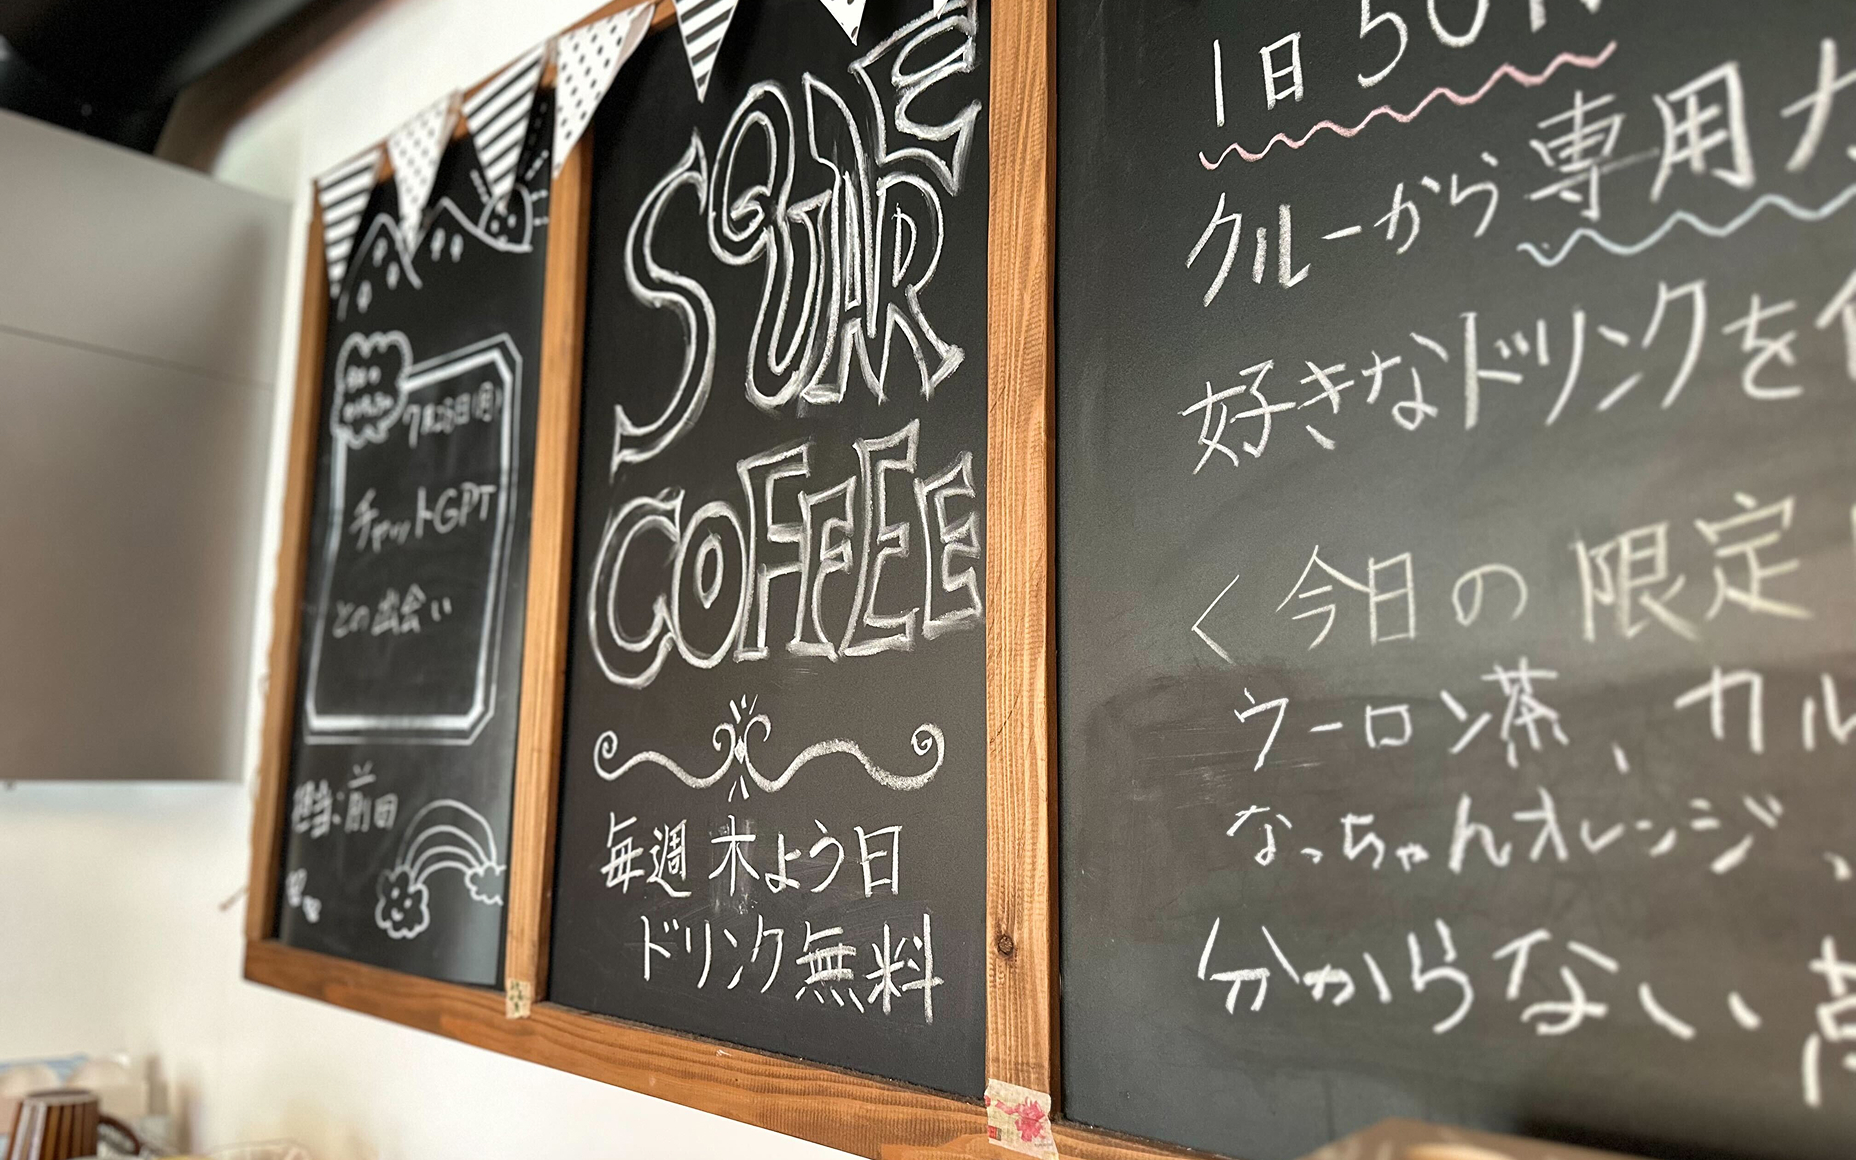 7月28日(月)
チャットGPT
との出会い
担当:前田
SQUARE
COFFEE
毎週 木よう日
ドリンク無料
1日50
クルーから専用カ
好きなドリンクを
<今日の限定
ウーロン茶、カル
なっちゃんオレンジ、
分からない